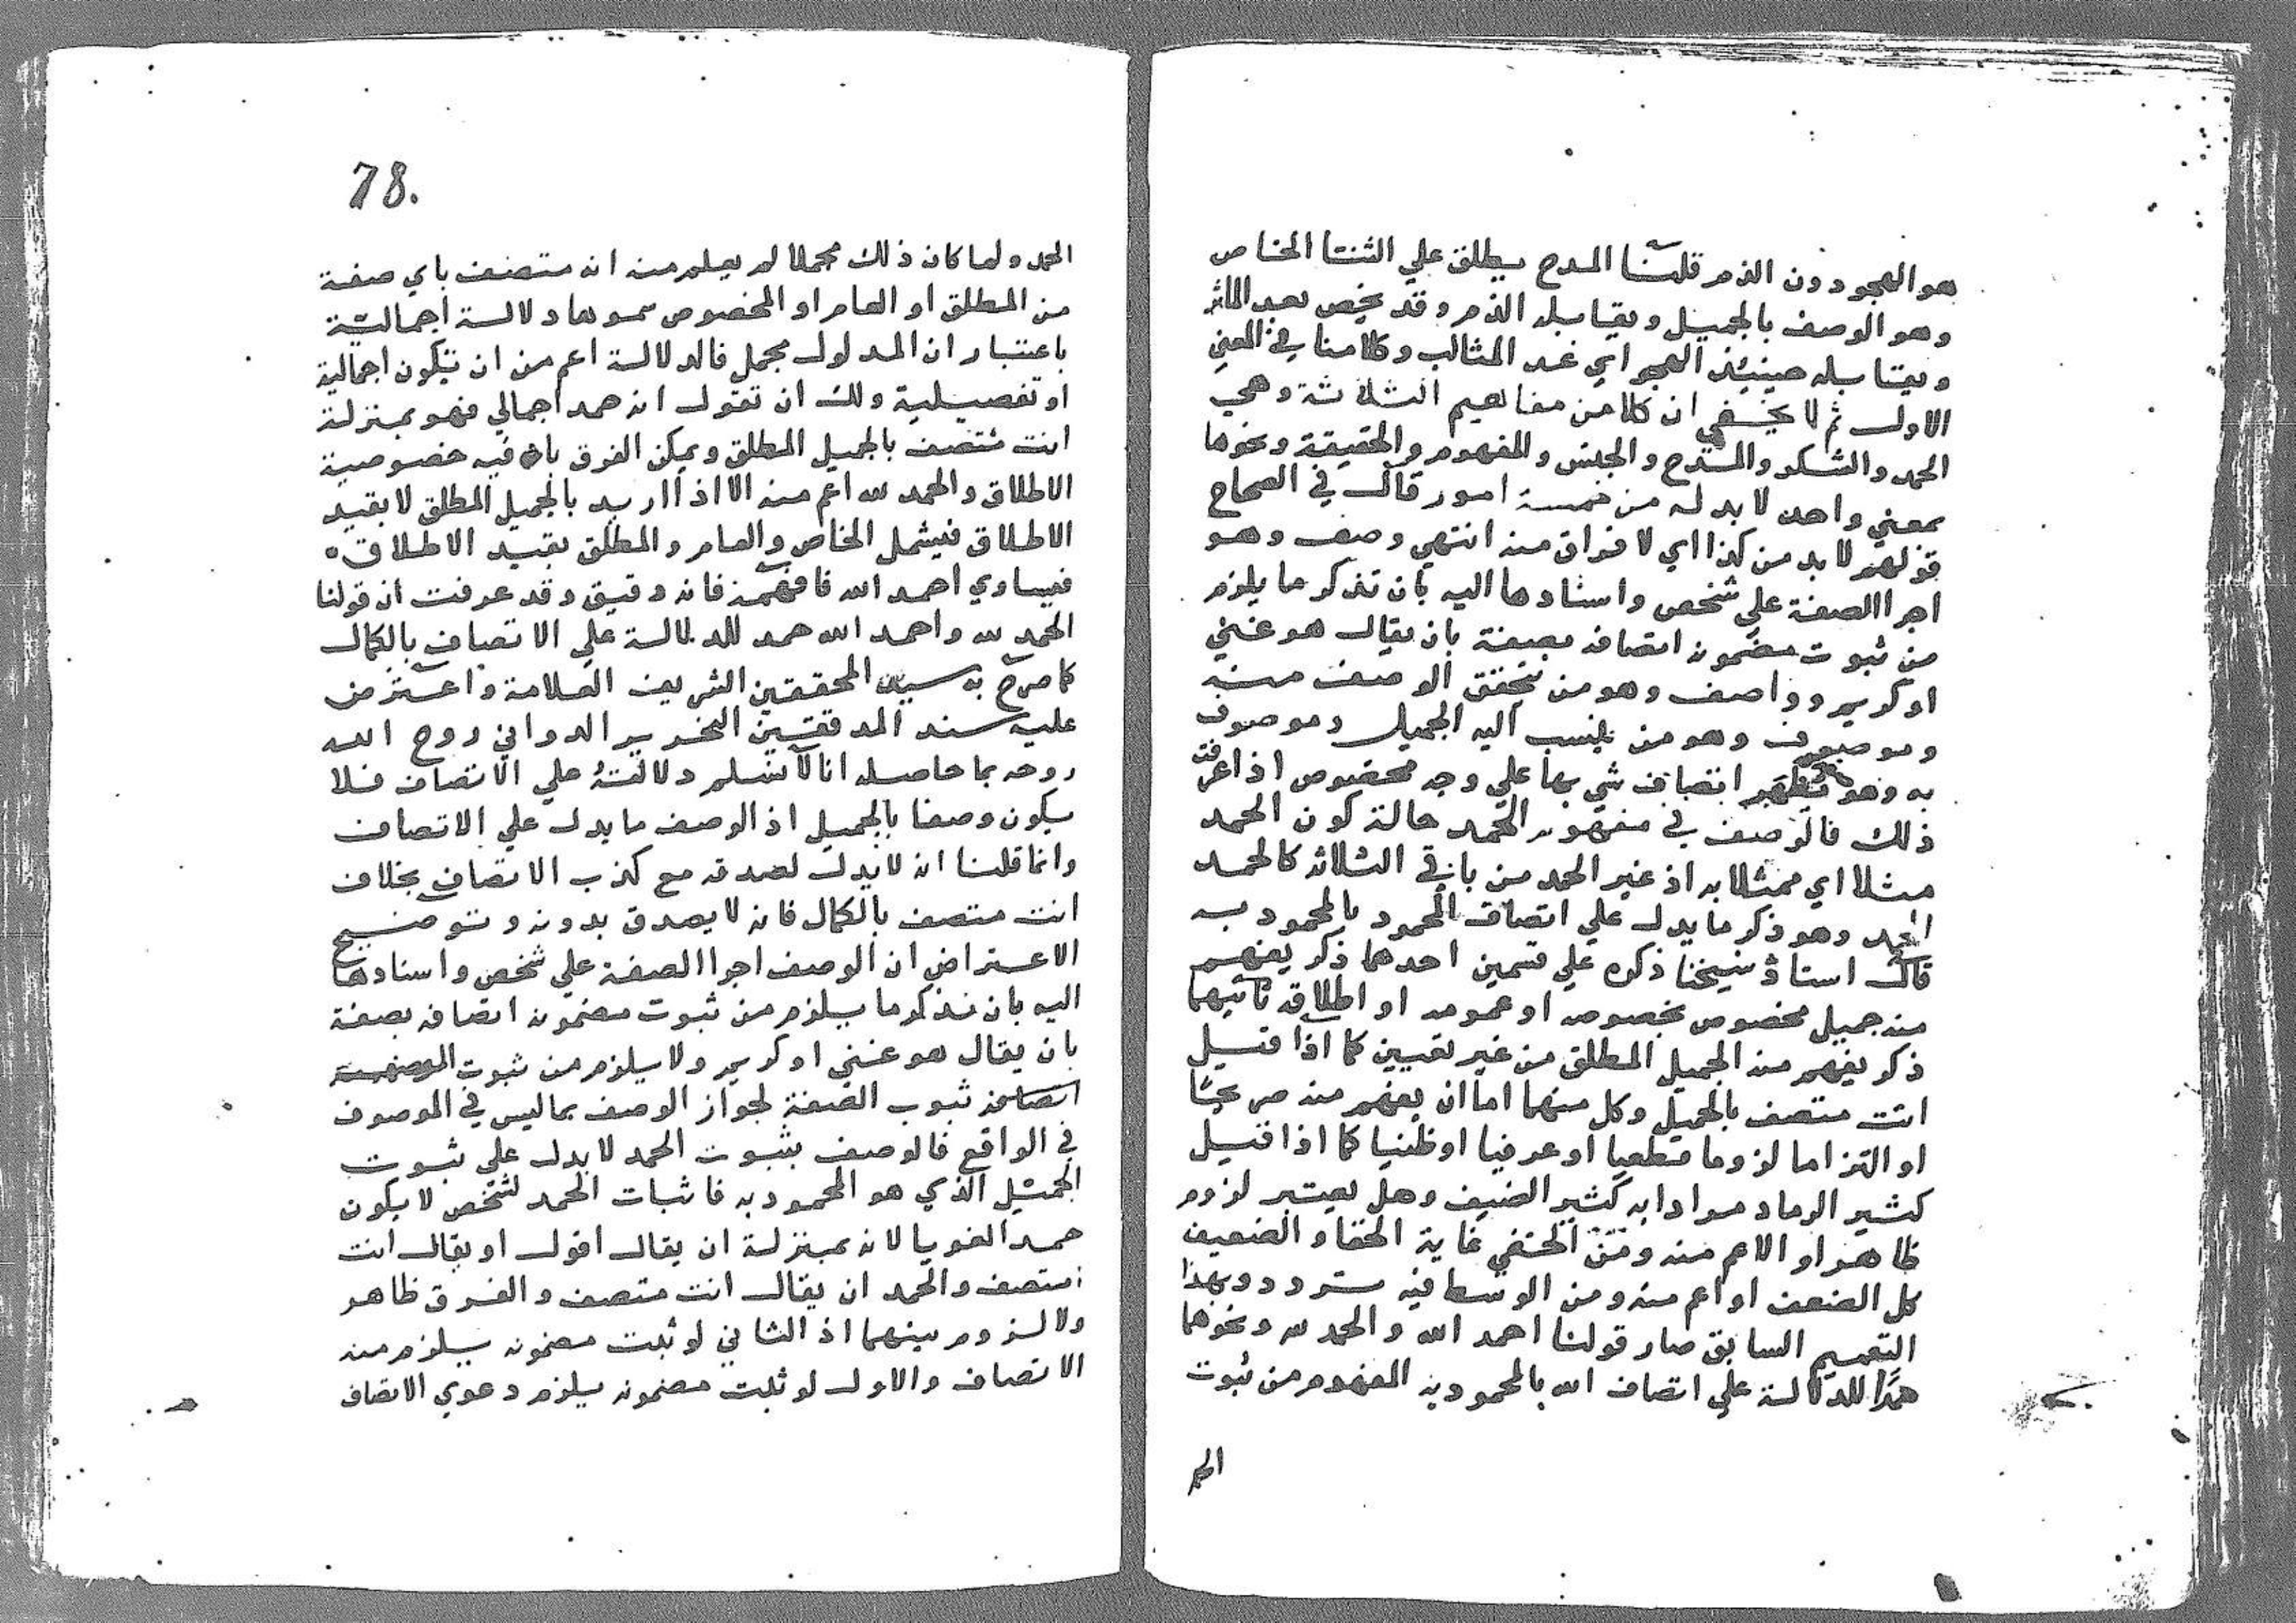 هو الهجو دون الذم قلنا المدح يطلق علي الثنا الخاص
وهو الوصف بالجميل ويقابله الذم وقد يخص بعد الماثر
ويقابله حينيئذ الهجو اي عد المثالب وكلامنا في المعني
الاول ثم لا يخفي ان كلا من مفاهيم الثلاثة وهي
الحمد والشكر والمدح والجنس والمفهوم والحقيقة ونحوها
بمعني واحد لا بد له من خمسة امور قال في الصحاح
قولهم لا بد من كذا اي لا فراق منه انتهي وصف وهو
اجرا الصفة علي شخص واسنادها اليه بان تذكر ما يلزم
من ثبوت مضمونه اتصافه بصفة بان يقال هو غني
او كريم وواصف وهو من تحقق الوصف منه
وموصوف وهو من ينسب اليه الجميل وموصوف
به وهو اتصاف شي بها علي وجه مخصوص اذا عرفت
ذلك فالوصف في مفهوم الحمد حالة كون الحمد
مثلا اي ممثلا به اذ غير الحمد من باقي الثلاثة كالحمد
الحمد وهو ذكر ما يدل علي اتصاف المحمود بالمحمود به
قال استاذ شيخنا ذكره علي قسمين احدهما ذكر يفهم
منه جميل مخصوص بخصوصه او عمومه او اطلاقه ثانيهما
ذكر يفهم منه الجميل المطلق من غير تعيين كما اذا قيل
انت متصف بالجميل وكل منهما اما ان يفهم منه صريحا
او التزاما لزوما قطعيا او عرفيا او ظنيا كما اذا قيل
كثير الرماد مرادا به كثير الضيف وهل يعتبر لزوم
ظاهر او الاعم منه ومن الخفي غاية الخفا والضعيف
كل الضعف او اعم منه ومن الوسط فيه تردد وبهذا
التعميم السابق صار قولنا احمد الله والحمد لله ونحوهما
حمدا للدلالة علي اتصاف الله بالمحمود به المفهوم من ثبوت
الحمد
78.
الحمد ولما كان ذلك مجملا لم يعلم منه انه متصف باي صفة
من المطلق او العام او المخصوص سموها دلالة اجمالية
باعتبار ان المدلول مجمل فالدلالة اعم من ان تكون اجمالية
او تفصيلية ولك ان تقول انه حمد اجمالي فهو بمنزلة
انت متصف بالجميل المطلق ويمكن الفرق بان فيه خصوصية
الاطلاق والحمد لله اعم منه الا اذا اريد بالجميل المطلق لا بقيد
الاطلاق فيشمل الخاص والعام والمطلق بقيد الاطلاق
فيساوي احمد الله فافهمه فانه دقيق وقد عرفت ان قولنا
الحمد لله واحمد الله حمد للدلالة علي الاتصاف بالكمال
كما صرح به سيد المحققين الشريف العلامة واعترض
عليه سند المدققين النحرير الدواني روح الله
روحه بما حاصله انا لا نسلم دلالته علي الاتصاف فلا
يكون وصفا بالجميل اذ الوصف ما يدل علي الاتصاف
وانما قلنا انه لا يدل لصدقه مع كذب الاتصاف بخلاف
انت متصف بالكمال فانه لا يصدق بدونه وتوضيح
الاعتراض ان الوصف اجرا الصفة علي شخص واسنادها
اليه بان نذكر ما يلزم من ثبوت مضمونه اتصافه بصفة
بان يقال هو غني او كريم ولا يلزم من ثبوت
اتصافه ثبوب الصفة لجواز الوصف بما ليس في الموصوف
في الواقع فالوصف بثبوت الحمد لا يدل علي ثبوت
الجميل الذي هو المحمود به فاثبات الحمد لشخص لا يكون
حمدا لغويا لانه بمنزلة ان يقال اقول او يقال انت
متصف والحمد ان يقال انت متصف والفرق ظاهر
ولا لزوم بينهما اذ الثاني لو ثبت مضمونه يلزم منه
الاتصاف والاول لو ثبت مضمونه يلزم دعوي الاتصاف